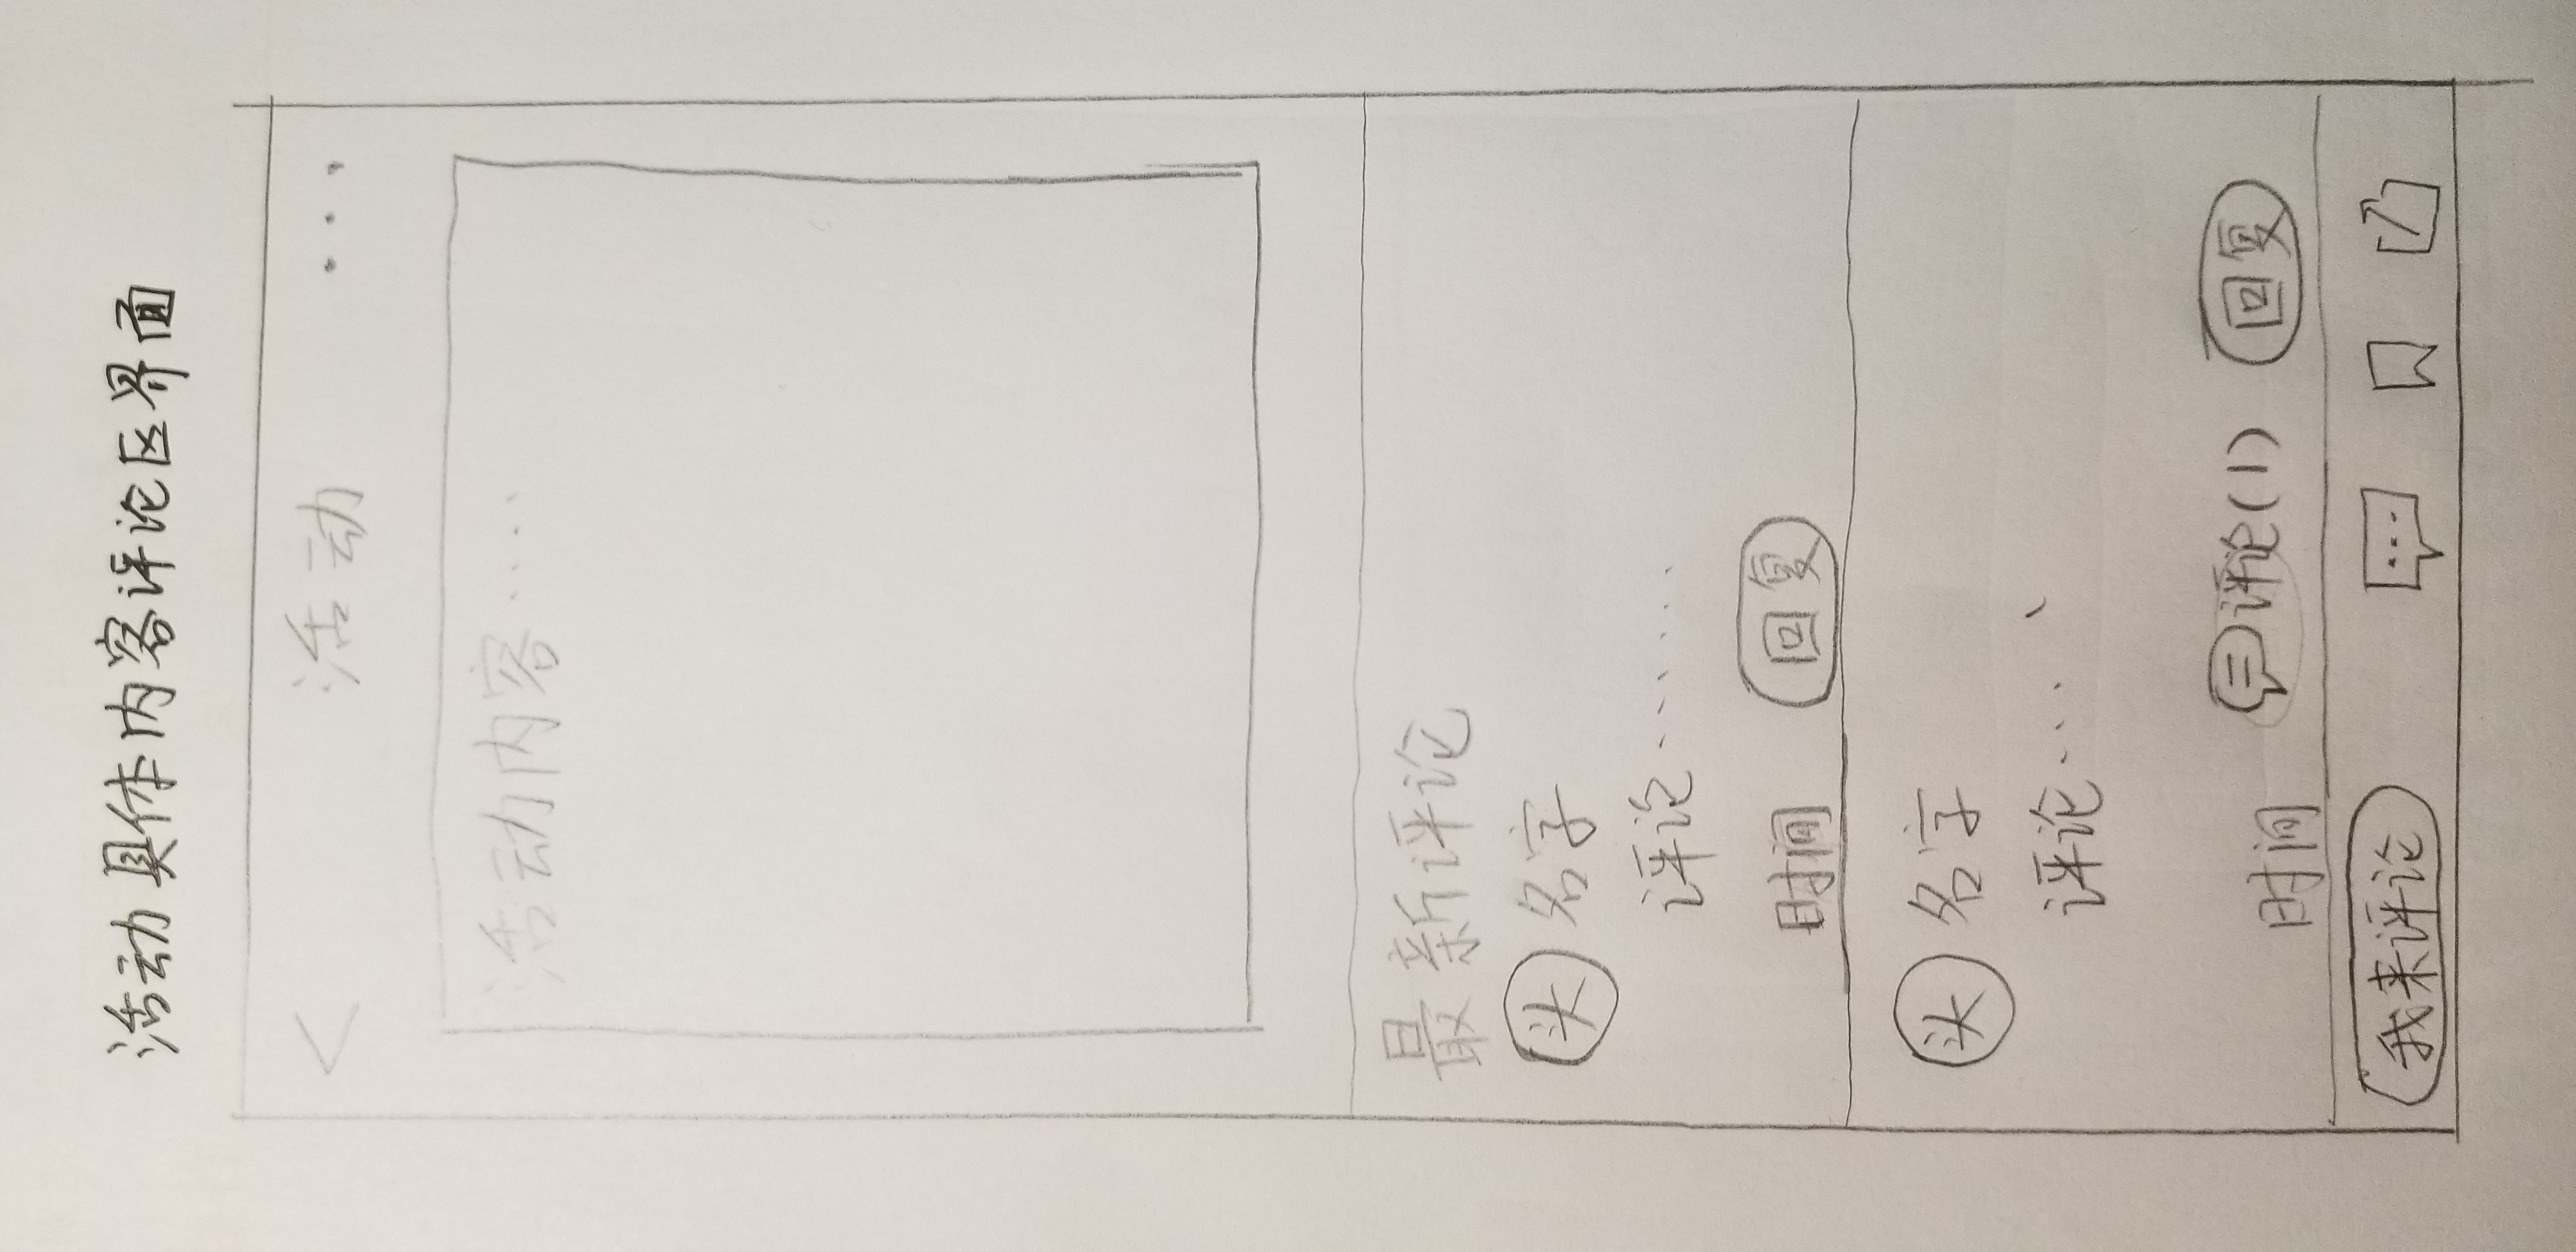 活动具体内容评论区界面
< 活动 ...
活动内容....
最新评论
头 名字
评论......
时间 回复
头 名字
评论....
时间 评论(1) 回复
我来评论 ...